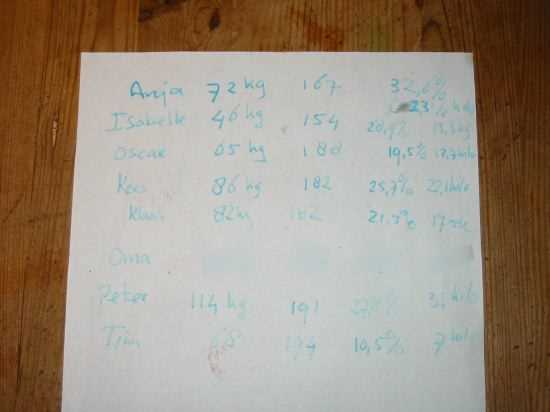 Anja 72 kg 167 32,6%
23% kilo
Isabelle 46 kg 154 28,9% 13,3 kg
Oscar 65 kg 188 19,5% 12,7 kilo
Kees 86 kg 182 25,7% 22,1 kilo
Klaas 82 kg 182 21,3%
Oma
Peter 114 kg 191 kilo
Tim 10,5% 7 kilo